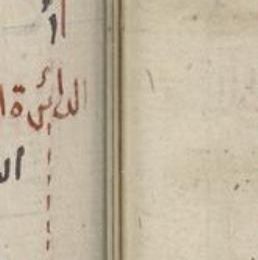 أ
الدائرة ا
ال